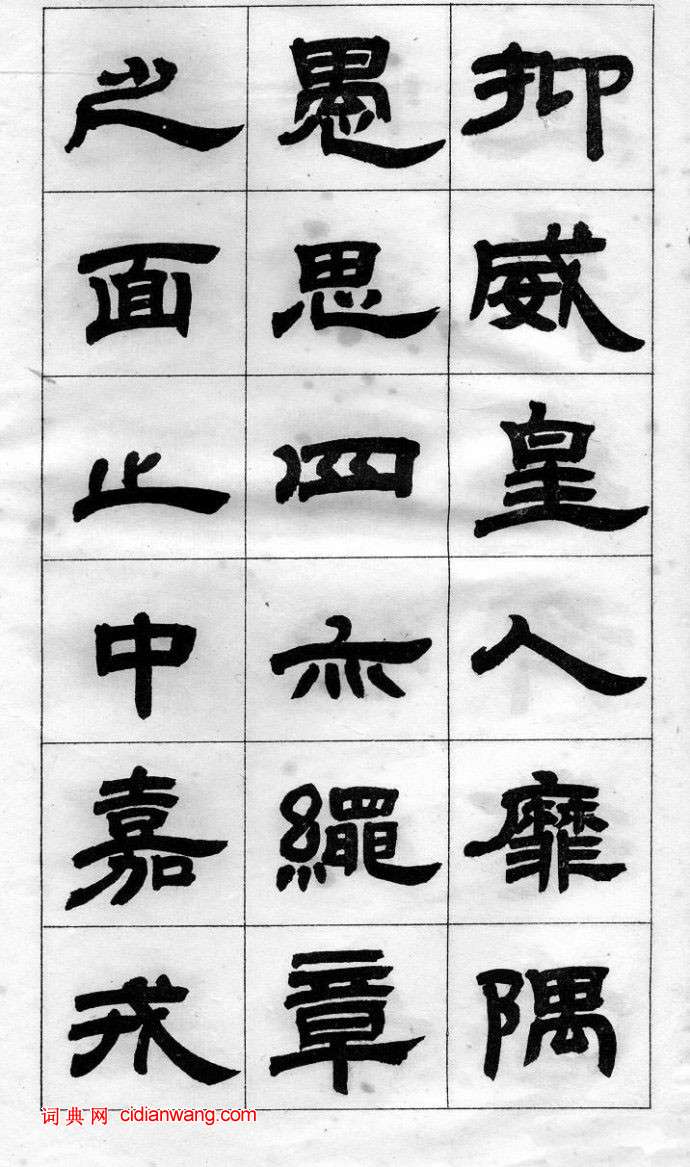 抑威皇人靡隅
愚思四亦繩章
之面止中嘉戎
词典网 cidianwang.com